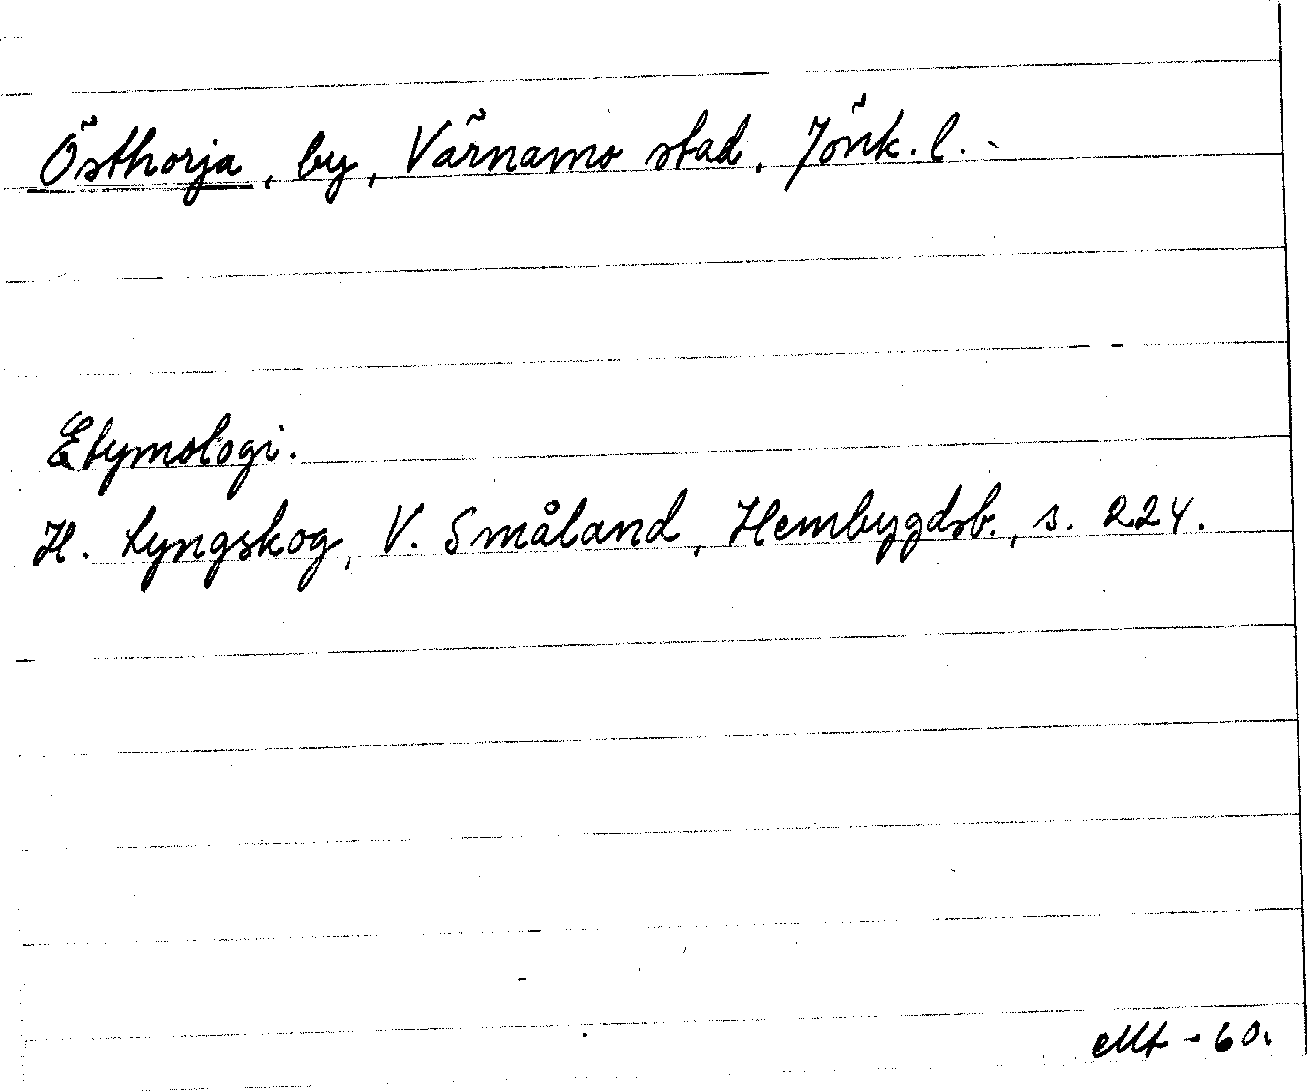 Östhorja, by, Värnamo stad, Jönk. l.
Etymologi.
H. Lyngskog, V. Småland, Hembygdsb., s. 224.
Mt - 60.